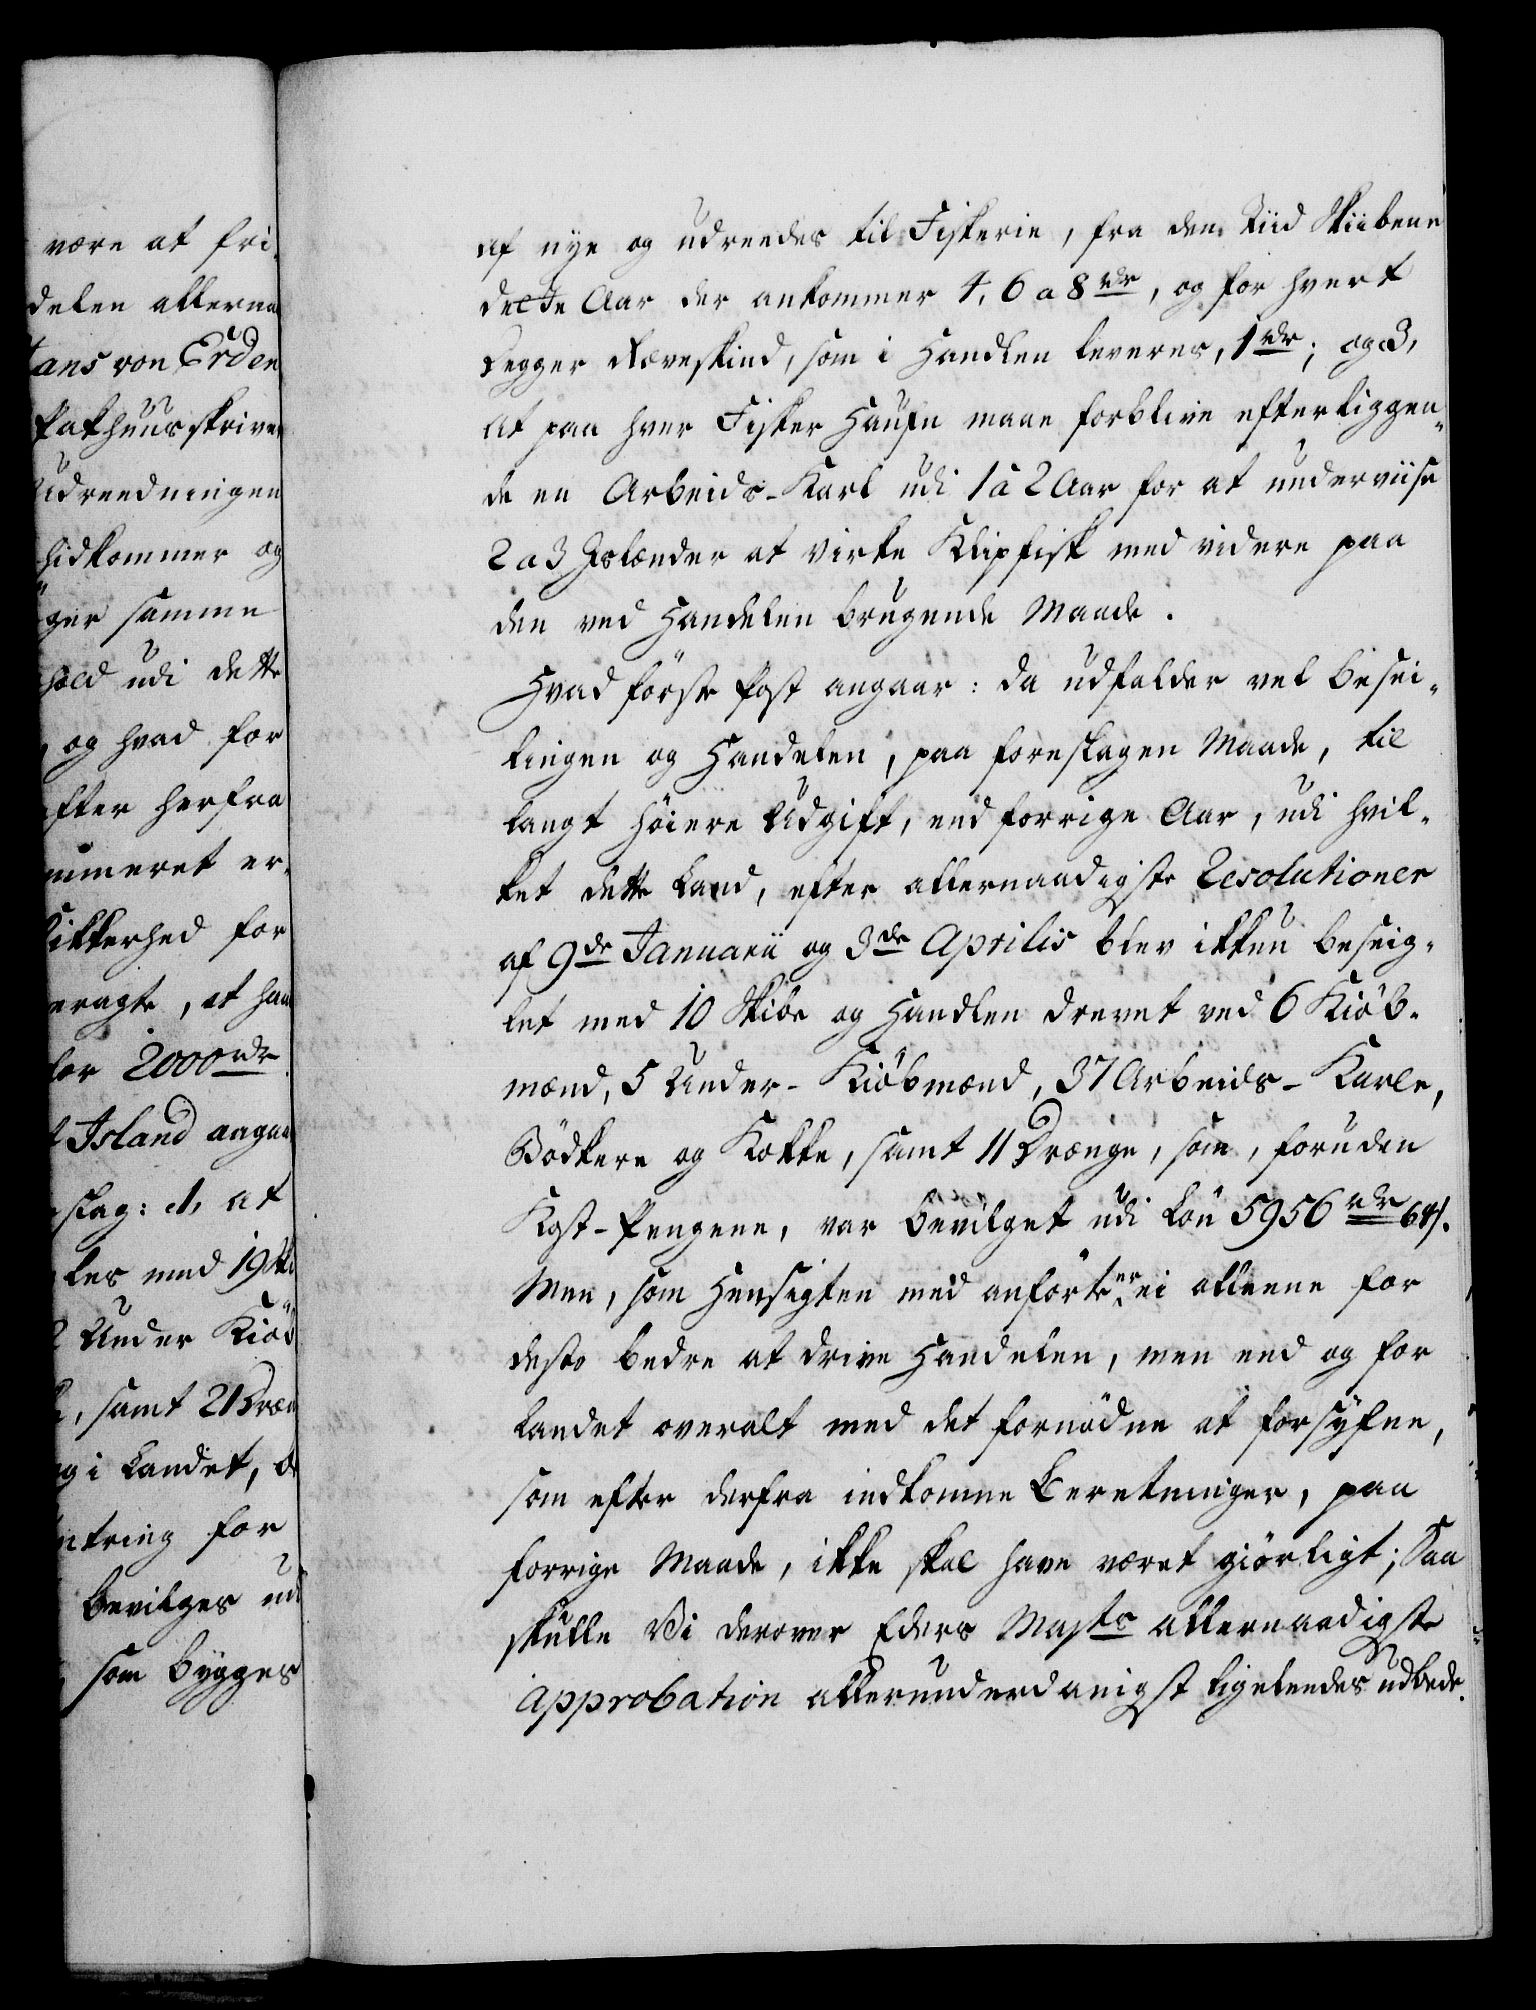 være at fri-
delen allerna
ans von Erden
Pakhuusskriver
Udreedningen
hidkommer og
ger samme
hold udi dette
og hvad for
efter herfra
umeret er,
Sikkerhed for
eragte, at han
for 2000 rdr
t Island angaa
slag: 1, at
les med 19 Ski
2 Under Kiöb
, samt 21 Dræn
og i Landet, d
ntring for
bevilges udi
som bygges
af nye og udreedes til Fiskerie, fra den Tiid Skiibene
dette Aar der ankommer 4, 6 a 8 rdr, og for hvert
Degger Ræveskind, som i Handlen leveres, 1 rdr; og 3,
at paa hver Fisker Haufn maae forblive efterliggen-
de en Arbeids-Karl udi 1 à 2 Aar for at underviise
2 a 3 Islænder at virke Klipfisk med videre paa
den ved Handelen brugende Maade.
Hvad förste Post angaar: da udfalder vel Besei-
lingen og Handelen, paa foreslagen Maade, til
langt höiere Udgift, end forrige Aar, udi hvil-
ket dette Land, efter allernaadigste Resolutioner
af 9de Januarii og 3de Aprilis blev ikkun beseig-
let med 10 Skibe og Handlen drevet ved 6 Kiöb-
mænd, 5 Under-Kiöbmænd, 37 Arbeids-Karle,
Bödkere og Kokke, samt 11 Drænge, som, foruden
Kost-Pengene, var bevilget udi Lön 5956 rdr 64 s.
Men, som Hensigten med anförte er ei alleene for
desto bedre at drive Handelen, men end og for
Landet overalt med det fornödne at forsyfne,
som efter derfra indkomne Beretninger, paa
forrige Maade, ikke skal have været giörligt; Saa
skulle Vi derover Eders Majts allernaadigste
Approbation allerunderdanigst ligeledes udbede.